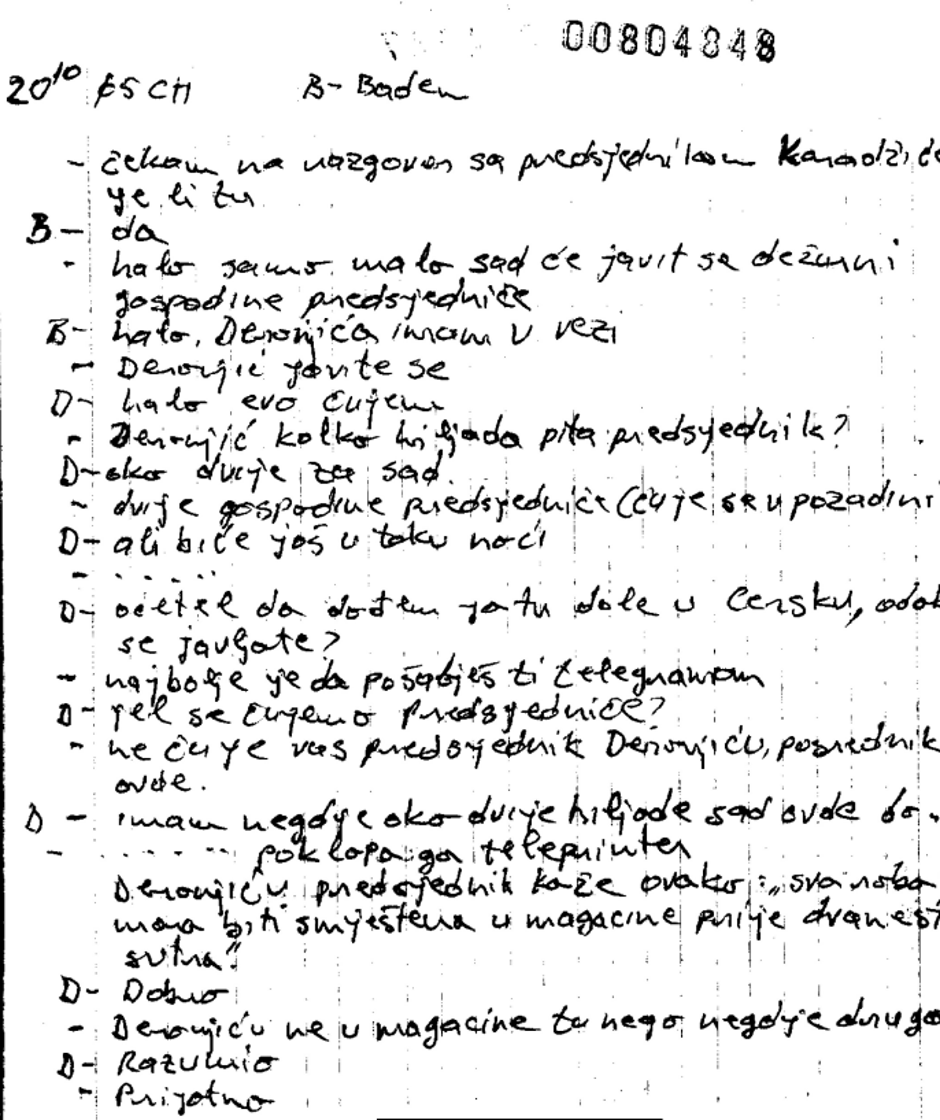 00804848
20¹⁰ 5 CH B- Baden
- čekam na razgovor sa predsjednikom Karadžiće
je li tu
B - da
- halo samo malo sad će javit se dežurni
gospodine predsjedniče
B- halo, Deronjića imam u vezi
- Deronjić javite se
D- halo evo čujem
- Deronjić kolko hiljada pita predsjednik?
D- oko dvije za sad.
- dvije gospodine predsjedniče (čuje se u pozadini
D- ali biće još u toku noći
- . . . . . .
D- da dođem ja tu dole u Cersku, odak
se javljate?
- najbolje je da pošalješ ti telegramom
D- jel se čujemo predsjedniče?
- ne čuje vas predsjednik Deronjiću, posrednik
ovde.
D - imam negdje oko dvije hiljade sad ovde do.
- . . . . . . poklopa ga teleprinter
Deronjiću predsjednik kaže ovako: „sva roba
mora biti smještena u magacine prije dvanest
sutra"
D- Dobro
- Deronjiću ne u magacine tu nego negdje drugo
D- Razumio
- Prijatno